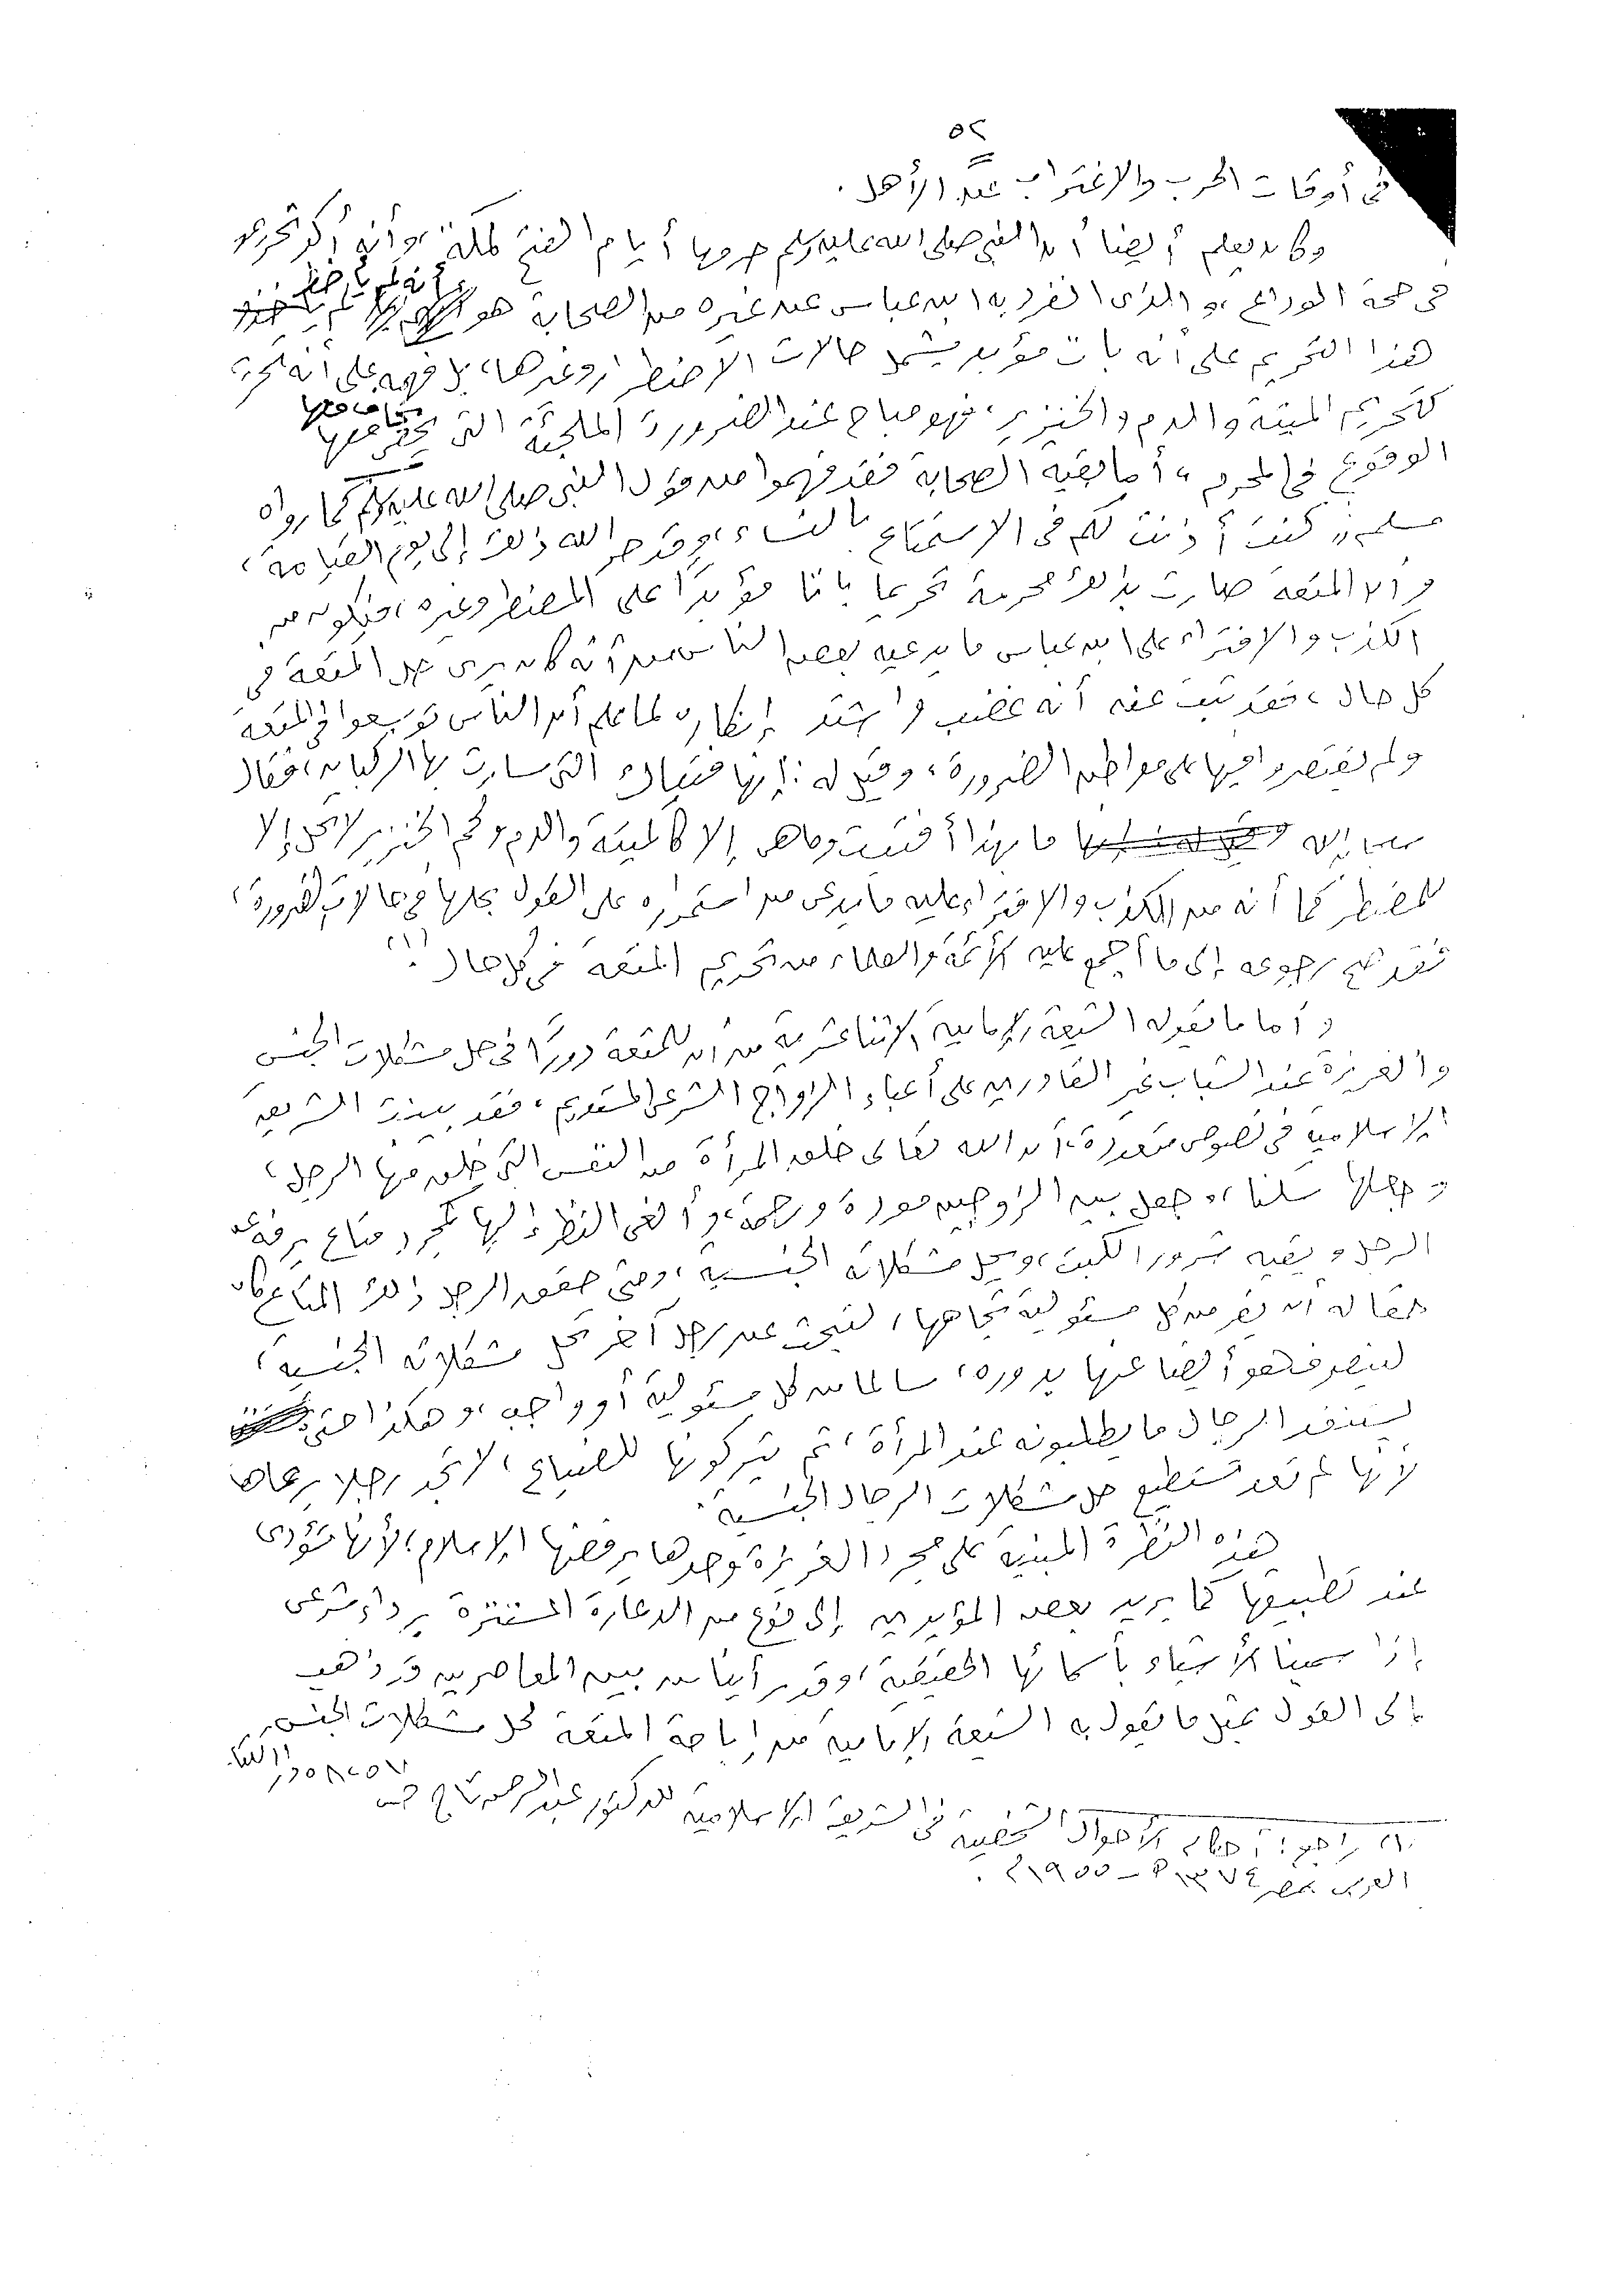 ٥٢
فى أوقات الحرب والاغتراب عن الأهل .
وكان يعلم أيضا أن النبى صلى الله عليه وسلم حرمها أيام الفتح لمكة، وأنه أكد تحريمها
فى حجة الوداع، والذى انفرد به ابن عباس عن غيره من الصحابة هو أنه لم يأخذ
هذا التحريم على أنه بات مؤبد يشمل حالات الاضطرار وغيرها، بل فهمه على أنه تحريم
كتحريم الميتة والدم والخنزير، فهو مباح عند الضرورة الملجئة التى يخاف معها
الوقوع فى المحرم، أما بقية الصحابة فقد فهموا من قول النبى صلى الله عليه وسلم كما رواه
مسلم " كنت أذنت لكم فى الاستمتاع بالنساء، وقد حرم الله ذلك إلى يوم القيامة،
وأن المتعة صارت بذلك محرمة تحريما باتا مؤبدا على المضطر وغيره، فيكون من
الكذب والافتراء على ابن عباس ما يدعيه بعض الناس من أنه كان يرى حل المتعة فى
كل حال، فقد ثبت عنه أنه غضب واشتد إنكاره لما علم أن الناس توسعوا فى المتعة
ولم يقتصروا فيها على مواطن الضرورة، وقيل له : إنها فتياك التى سارت بها الركبان، فقال
ما بهذا أفتيت وما هى إلا كالميتة والدم ولحم الخنزير لا تحل إلا
للمضطر كما أنه من الكذب والافتراء عليه ما يدعى من استمراره على القول بحلها فى حالات الضرورة،
فقد صح رجوعه إلى ما أجمع عليه الأئمة والعلماء من تحريم المتعة فى كل حال (١).
وأما ما يقوله الشيعة الإمامية الاثنا عشرية من أن للمتعة دورًا فى حل مشكلات الجنس
والغريزة عند الشباب غير القادرين على أعباء الزواج الشرعى المستديم، فقد بينت الشريعة
الإسلامية فى نصوص متعددة، أن الله تعالى خلق المرأة من النفس التى خلق منها الرجل،
وجعلها سكنا، وجعل بين الزوجين مودة ورحمة، وألغى النظر إليها كمجرد متاع يرفه عن
الرجل ويقيه شرور الكبت، ويحل مشكلاته الجنسية، ومتى حقق الرجل ذلك المتاع كان
حقا له أن يفر من كل مسئولية تجاهها، لتبحث عن رجل آخر تحل مشكلاته الجنسية،
لينصرف هو أيضا عنها بدوره، سالما من كل مسئولية أو واجب، وهكذا حتى
يستنفد الرجال ما يطلبونه عند المرأة، ثم يتركونها للضياع، لا تجد رجلا يرعاها
لأنها لم تعد تستطيع حل مشكلات الرجال الجنسية.
هذه النظرة المبنية على مجرد الغريزة وحدها يرفضها الإسلام، لأنها تؤدى
عند تطبيقها كما يريد بعض المؤيدين إلى نوع من الدعارة المستترة برداء شرعى
إذا سمينا الأشياء بأسمائها الحقيقية، وقد رأينا من بين المعاصرين من ذهب
إلى القول بمثل ما يقول به الشيعة الإمامية من إباحة المتعة لحل مشكلات الجنس
(١) راجع : أحكام الأحوال الشخصية فى الشريعة الإسلامية للدكتور عبد الرحمن تاج
العربى بمصر ١٣٧٤ هـ - ١٩٥٥ م .